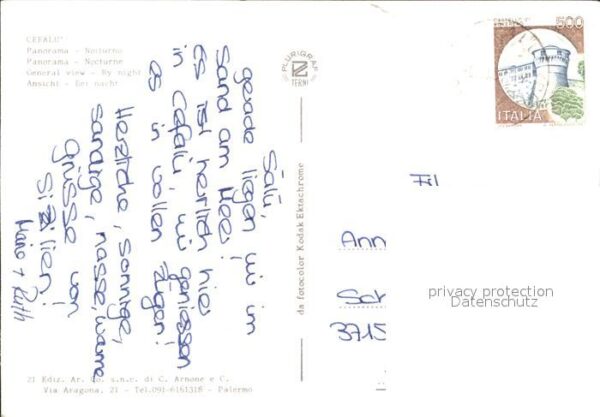 CEFALU'
Panorama - Notturno
Panorama - Nocturne
General view - By night
Ansicht - Bei nacht
Salü,
gerade liegen wir im
Sand am Meer!
es ist herrlich hier
in Cefalu, wir geniessen
es in vollen Zügen!
Herzliche, sonnige,
sandige, nasse, warme
Grüsse von
Sizilien!
Mario + Ruth
PLURIGRAF
TERNI
da fotocolor Kodak Ektachrome
500
ITALIA
Frl
Ann
Sch
3715
privacy protection
Datenschutz
21 Ediz. Ar. Co. s.n.c. di C. Arnone e C.
Via Aragona, 21 - Tel.091-6161318 - Palermo